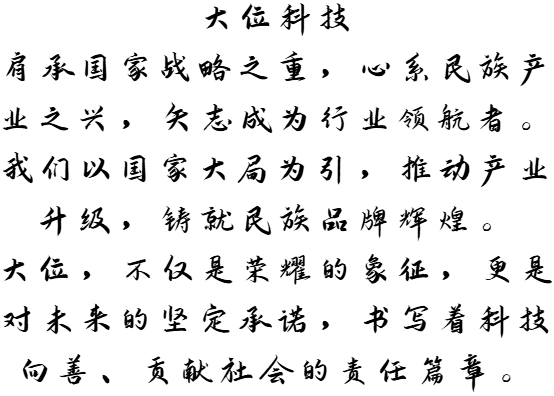 大位科技
肩承国家战略之重，心系民族产
业之兴，矢志成为行业领航者。
我们以国家大局为引，推动产业
升级，铸就民族品牌辉煌。
大位，不仅是荣耀的象征，更是
对未来的坚定承诺，书写着科技
向善、贡献社会的责任篇章。